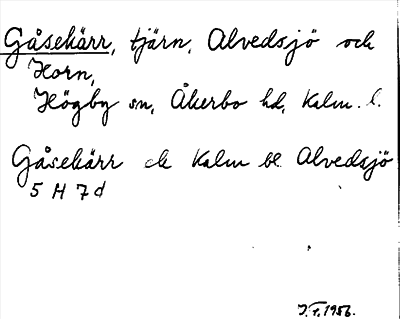 Gåsekärr, tjärn, Alvedsjö och
Horn,
Högby sn, Åkerbo hd, Kalm. l.
Gåsekärr ek Kalm bl Alvedsjö
5 H 7d
J.F. 1956.